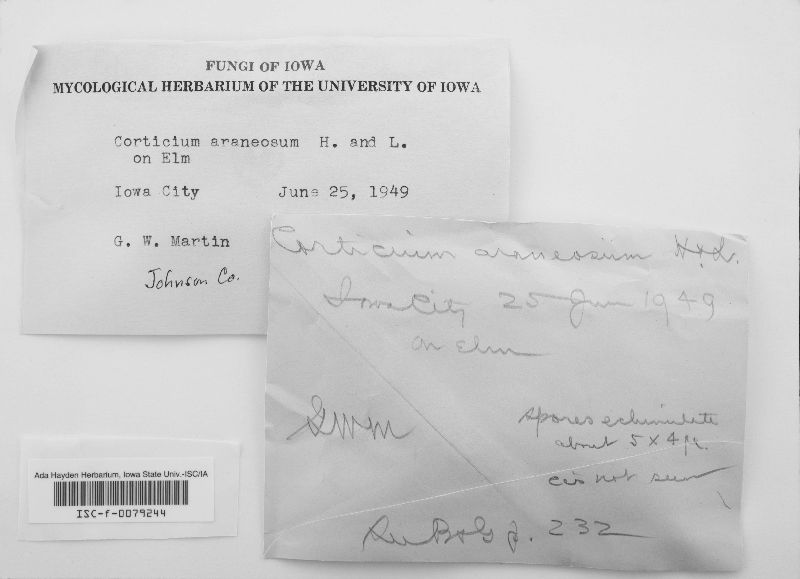 FUNGI OF IOWA
MYCOLOGICAL HERBARIUM OF THE UNIVERSITY OF IOWA
Corticium araneosum H. and L.
on Elm
Iowa City June 25, 1949
G. W. Martin
Johnson Co.
Corticium araneosum H & L.
Iowa City 25 June 1949
on elm
GWM
spores echinulate
about 5 x 4 μ.
cis not seen
B & G p. 232
Ada Hayden Herbarium, Iowa State Univ.-ISC/IA
ISC-f-0079244